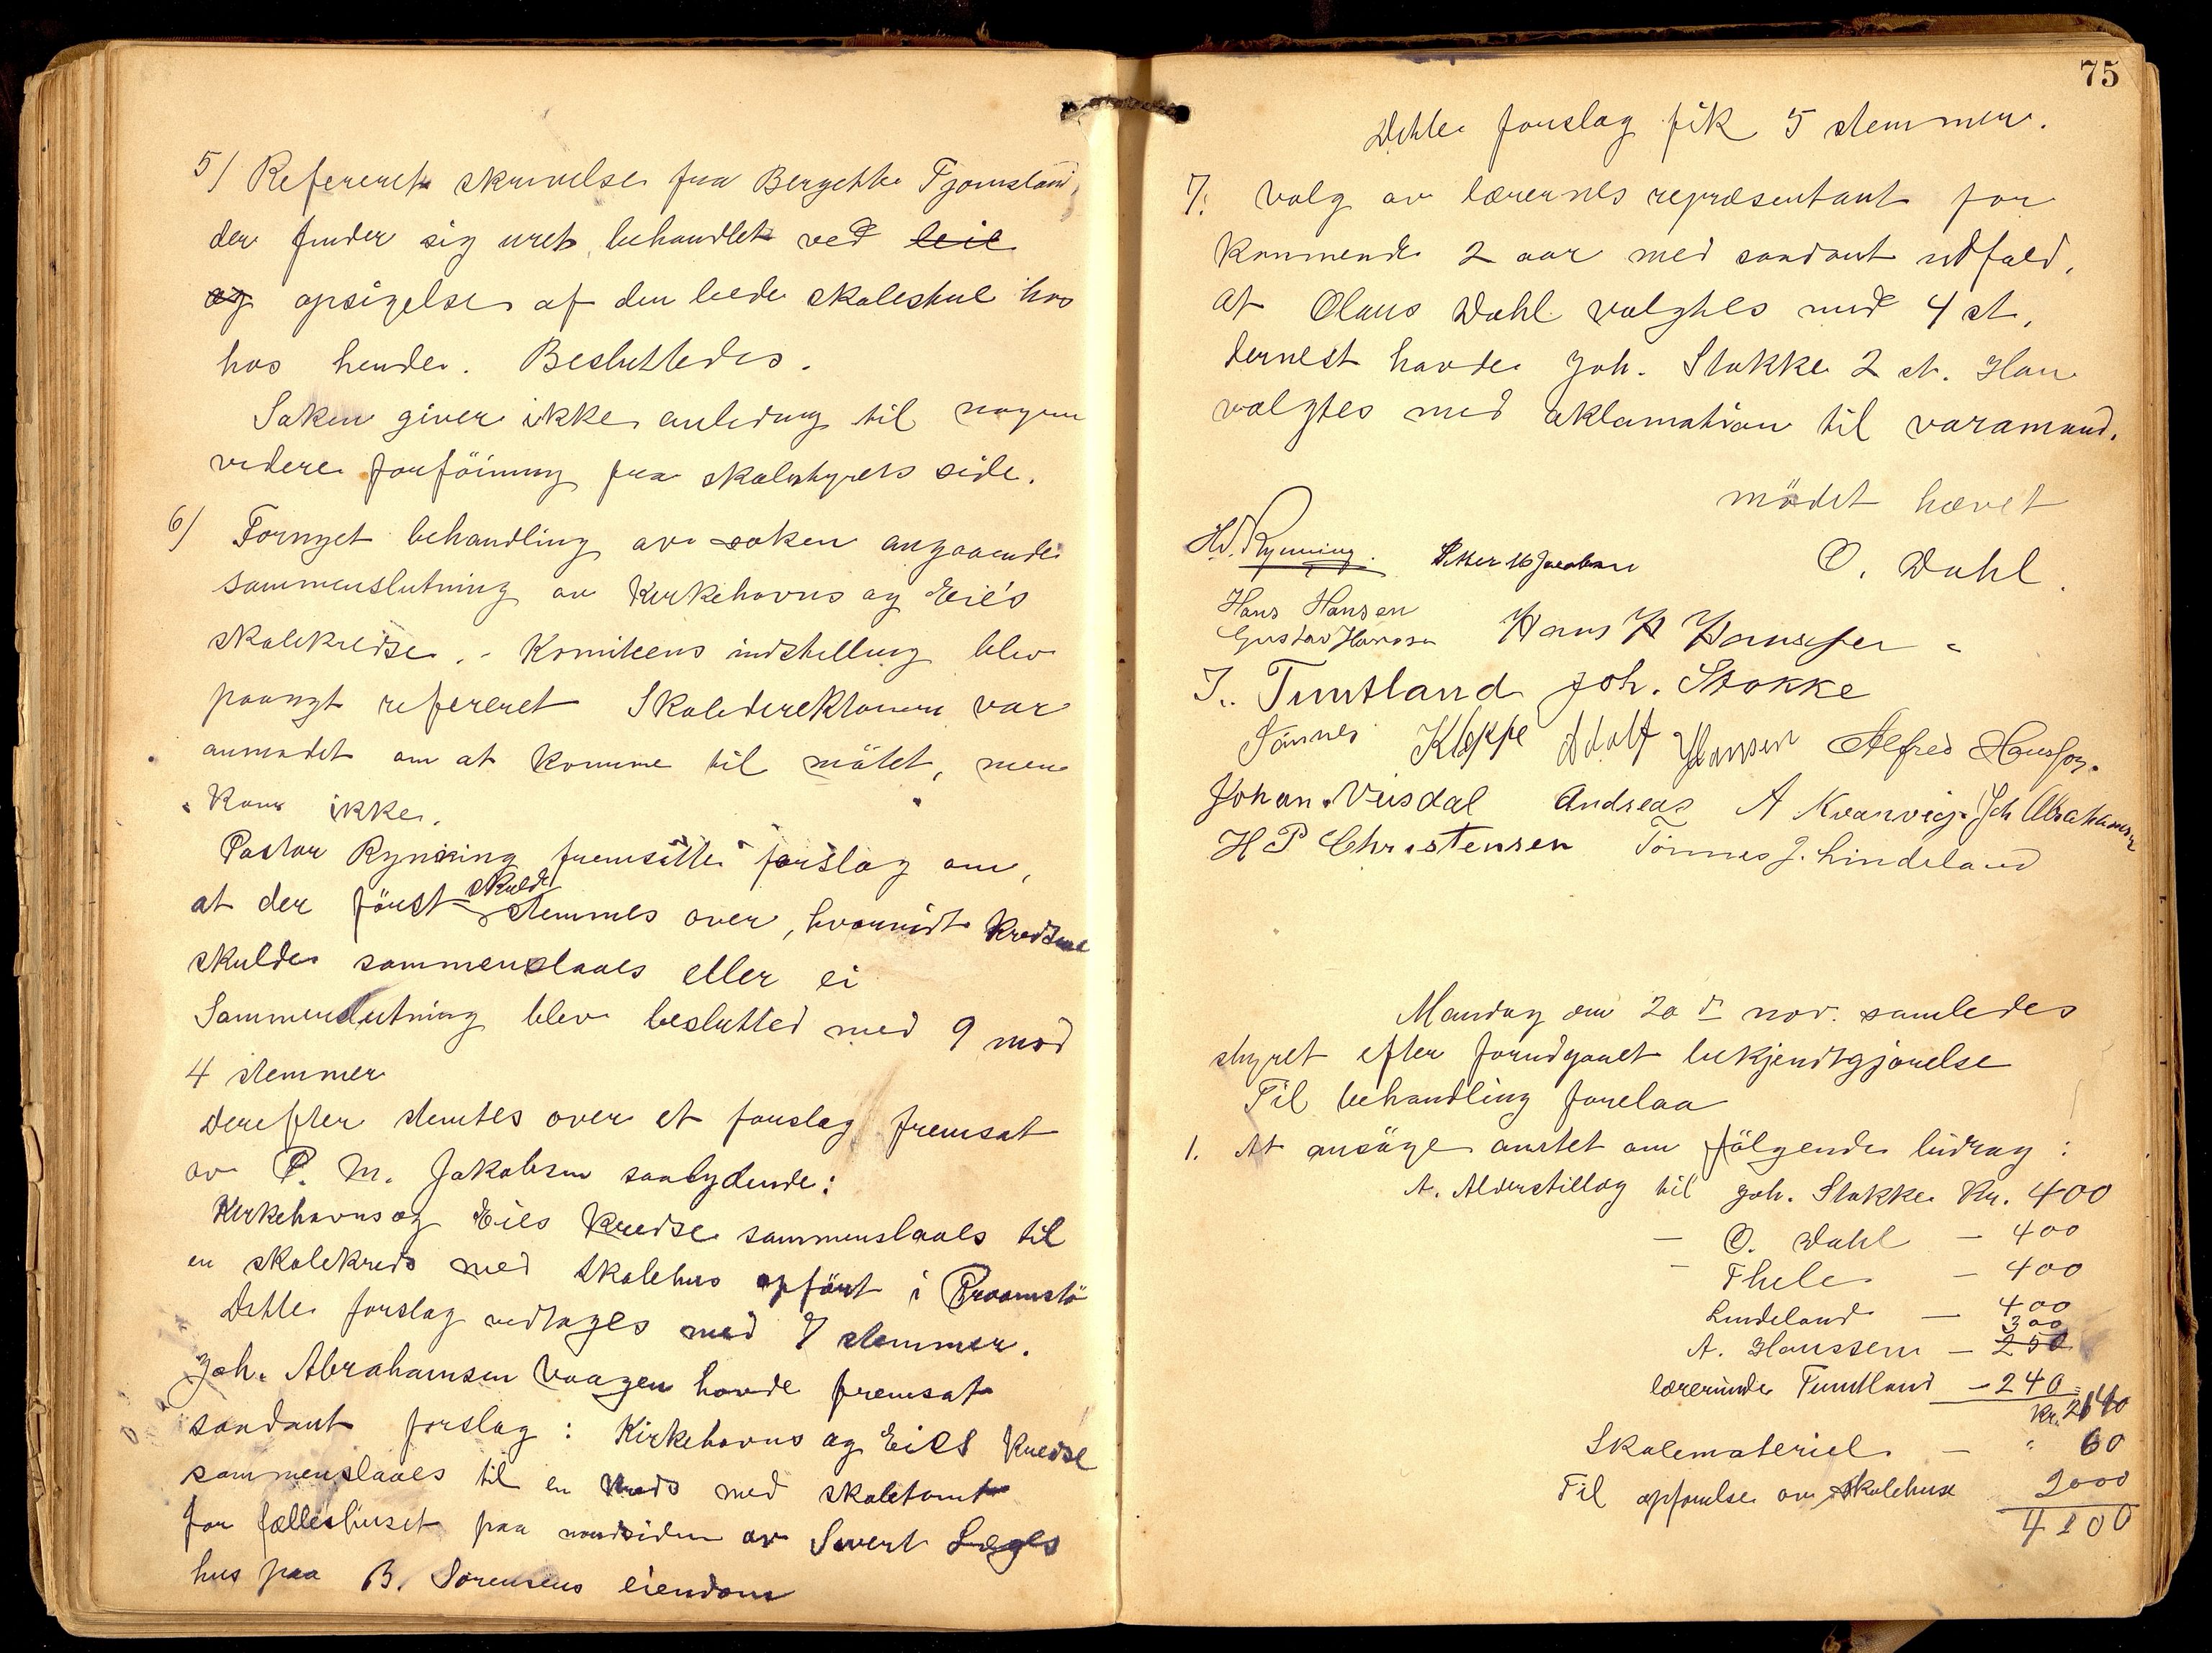 5/ Refereret skrivelse fra Bergette Tjomsland,
der finder sig uret behandlet ved leie
og opsigelse af den leede skolestue hos
hos hende. Besluttedes.
Saken giver ikke anledning til nogen
videre forföining fra skolestyrets side.
6/ Fornyet behandling av saken angaaende
sammenslutning av Kirkehavns og Eie's
skolekredse. - Komiteens indstilling blev
paanyt refereret Skoledirektøren var
anmodet om at komme til mötet, men
kom ikke.
Pastor Rynning fremsatte forslag om,
skulde
at der först stemmes over, hvorvidt kredsene
skulde sammenslaaes eller ei
Sammenslutning blev beslutted med 9 mod
4 stemmer
Derefter stemtes over et forslag fremsat
av P. M. Jakobsen saalydende:
Kirkehavns og Eies kredse sammenslaaes til
en skolekreds med skolehus opfört i
Dette forslag vedtages med 7 stemmer.
Joh. Abrahamsen Vaagen havde fremsat
saadant forslag: Kirkehavns og Eies kredse
sammenslaaes til en kreds med skoletomt
for fælleshuset paa nordsiden av Sivert
hus paa B. Sørensens eiendom
75
Dette forslag fik 5 stemmer.
7. Valg av lærernes repræsentant for
kommende 2 aar med saadant udfald,
at Olaus Dahl valgtes med 4 st.
dernest havde Joh. Stokke 2 st. Han
valgtes med aklamation til varamand.
mödet hævet
Hd. Rynning. Peter M Jacobsen O. Dahl.
Hans Hansen
Gustav Hansen Hans H Hansen
T. Tuntland Joh. Stokke
Tönnes Kleppe Adolf Hansen Alfred Hansen.
Johan. Veisdal Andreas A Kvanvig. Joh Abrahamsen
H P Christensen Tönnes J. Lindeland
Mandag den 20 d nov. samledes
styret efter forudgaaet bekjendtgjørelse
Til behandling forelaa
1. At ansöge amtet om fölgende bidrag:
A. Alderstillæg til Joh. Stokke Kr. 400
— O. Dahl — 400
— Thele — 400
Lindeland — 400
300
A. Hanssen — 250
lærerinde Tuntland — 240
Kr. 2140
Skolemateriel — " 60
Til opførelse av skolehuse 2000
4100